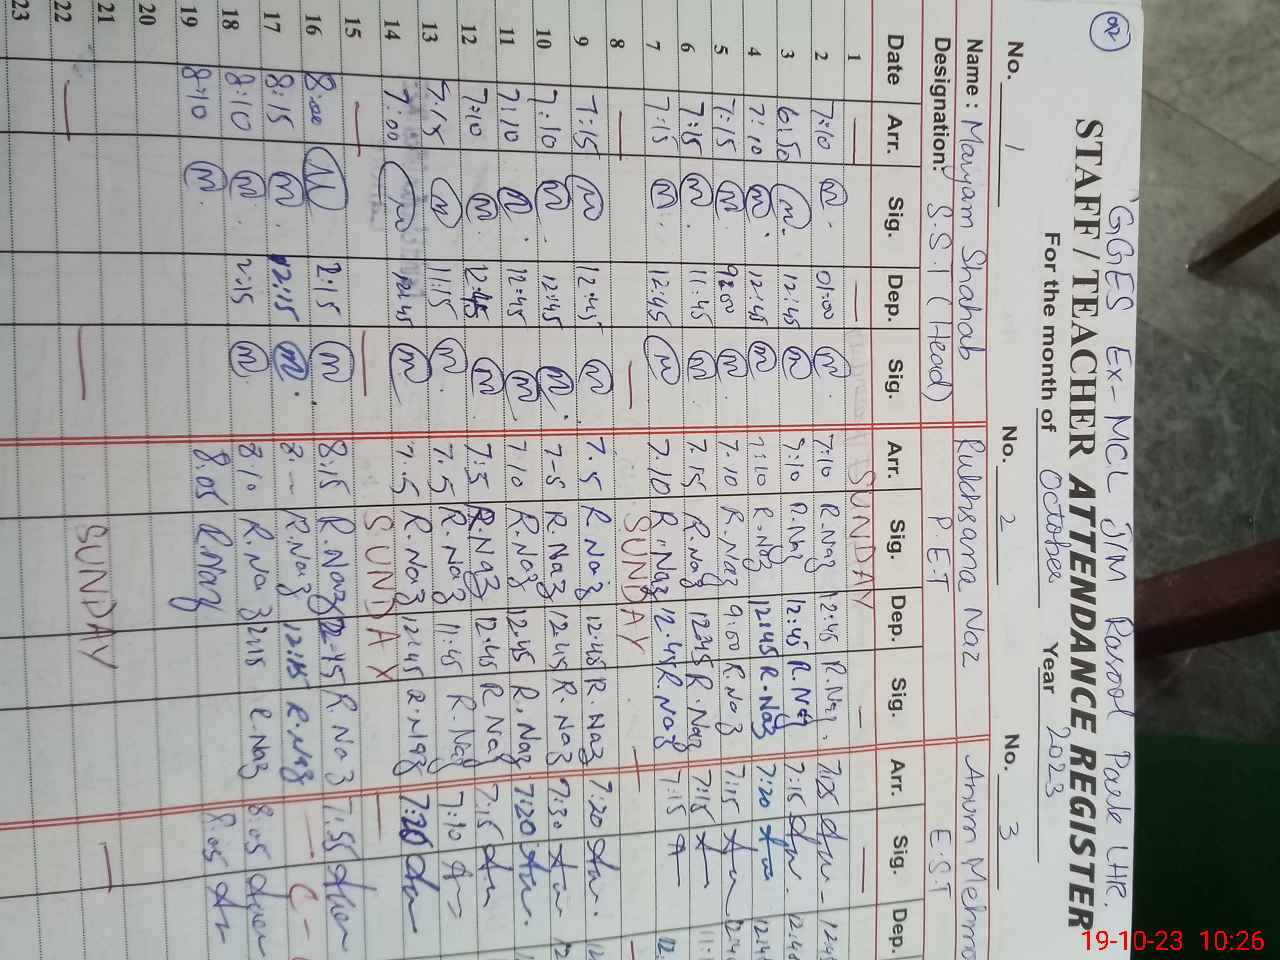 02
"GGES Ex-MCL JM Rasool Park LHR.
STAFF / TEACHER ATTENDANCE REGISTER
For the month of October Year 2023
No. 1 No. 2 No. 3
Name : Maryam Shahab Rukhsana Naz Anum Mehmo
Designation: S.S.T (Head) P.E.T E.S.T
Date Arr. Sig. Dep. Sig. Arr. Sig. Dep. Sig. Arr. Sig. Dep.
1 — — SUNDAY — —
2 7:10 m 01:00 m 7:10 R.Naz 12:45 R.Naz 7:25 12:45
3 6:50 m 12:45 m 7:10 R.Naz 12:45 R.Naz 7:15 12:45
4 7:10 m 12:45 m 7:10 R.Naz 12:45 R.Naz 7:20 12:4
5 7:15 m 9:00 m 7.10 R.Naz 9:00 R.Naz 7:15 12:4
6 7:15 m 11:45 m 7.15 R.Naz R.Naz 7:15 11:
7 7:15 m 12:45 m 7.10 R.Naz 12.45 R.Naz 7:15 12.
8 — — SUNDAY — —
9 7:15 m 12:45 m 7.5 R.Naz 12:45 R.Naz 7:20 12
10 7:10 m 12:45 m 7-5 R.Naz 12.45 R.Naz 7:30 12
11 7:10 m 12:45 m 7.10 R.Naz 12.45 R.Naz 7:20
12 7:10 m 12:45 m 7:5 R.Naz 12.45 R.Naz 7:15
13 7:15 m 11:15 m 7.5 R.Naz 11:45 R.Naz 7:10
14 7:00 m 12:45 m 7.5 R.Naz 12:45 R.Naz 7:20
15 — — SUNDAY —
16 8:00 m 2:15 m 8:15 R.Naz R.Naz 7:55
17 8:15 m 12:15 m 8 -- R.Naz 12:15 R.Naz — C-
18 8:10 m 2:15 m 8:10 R.Naz 2:15 R.Naz 8:05
19 8:10 m 8:05 R.Naz 8:05
20
21
22 — — SUNDAY —
23
19-10-23 10:26